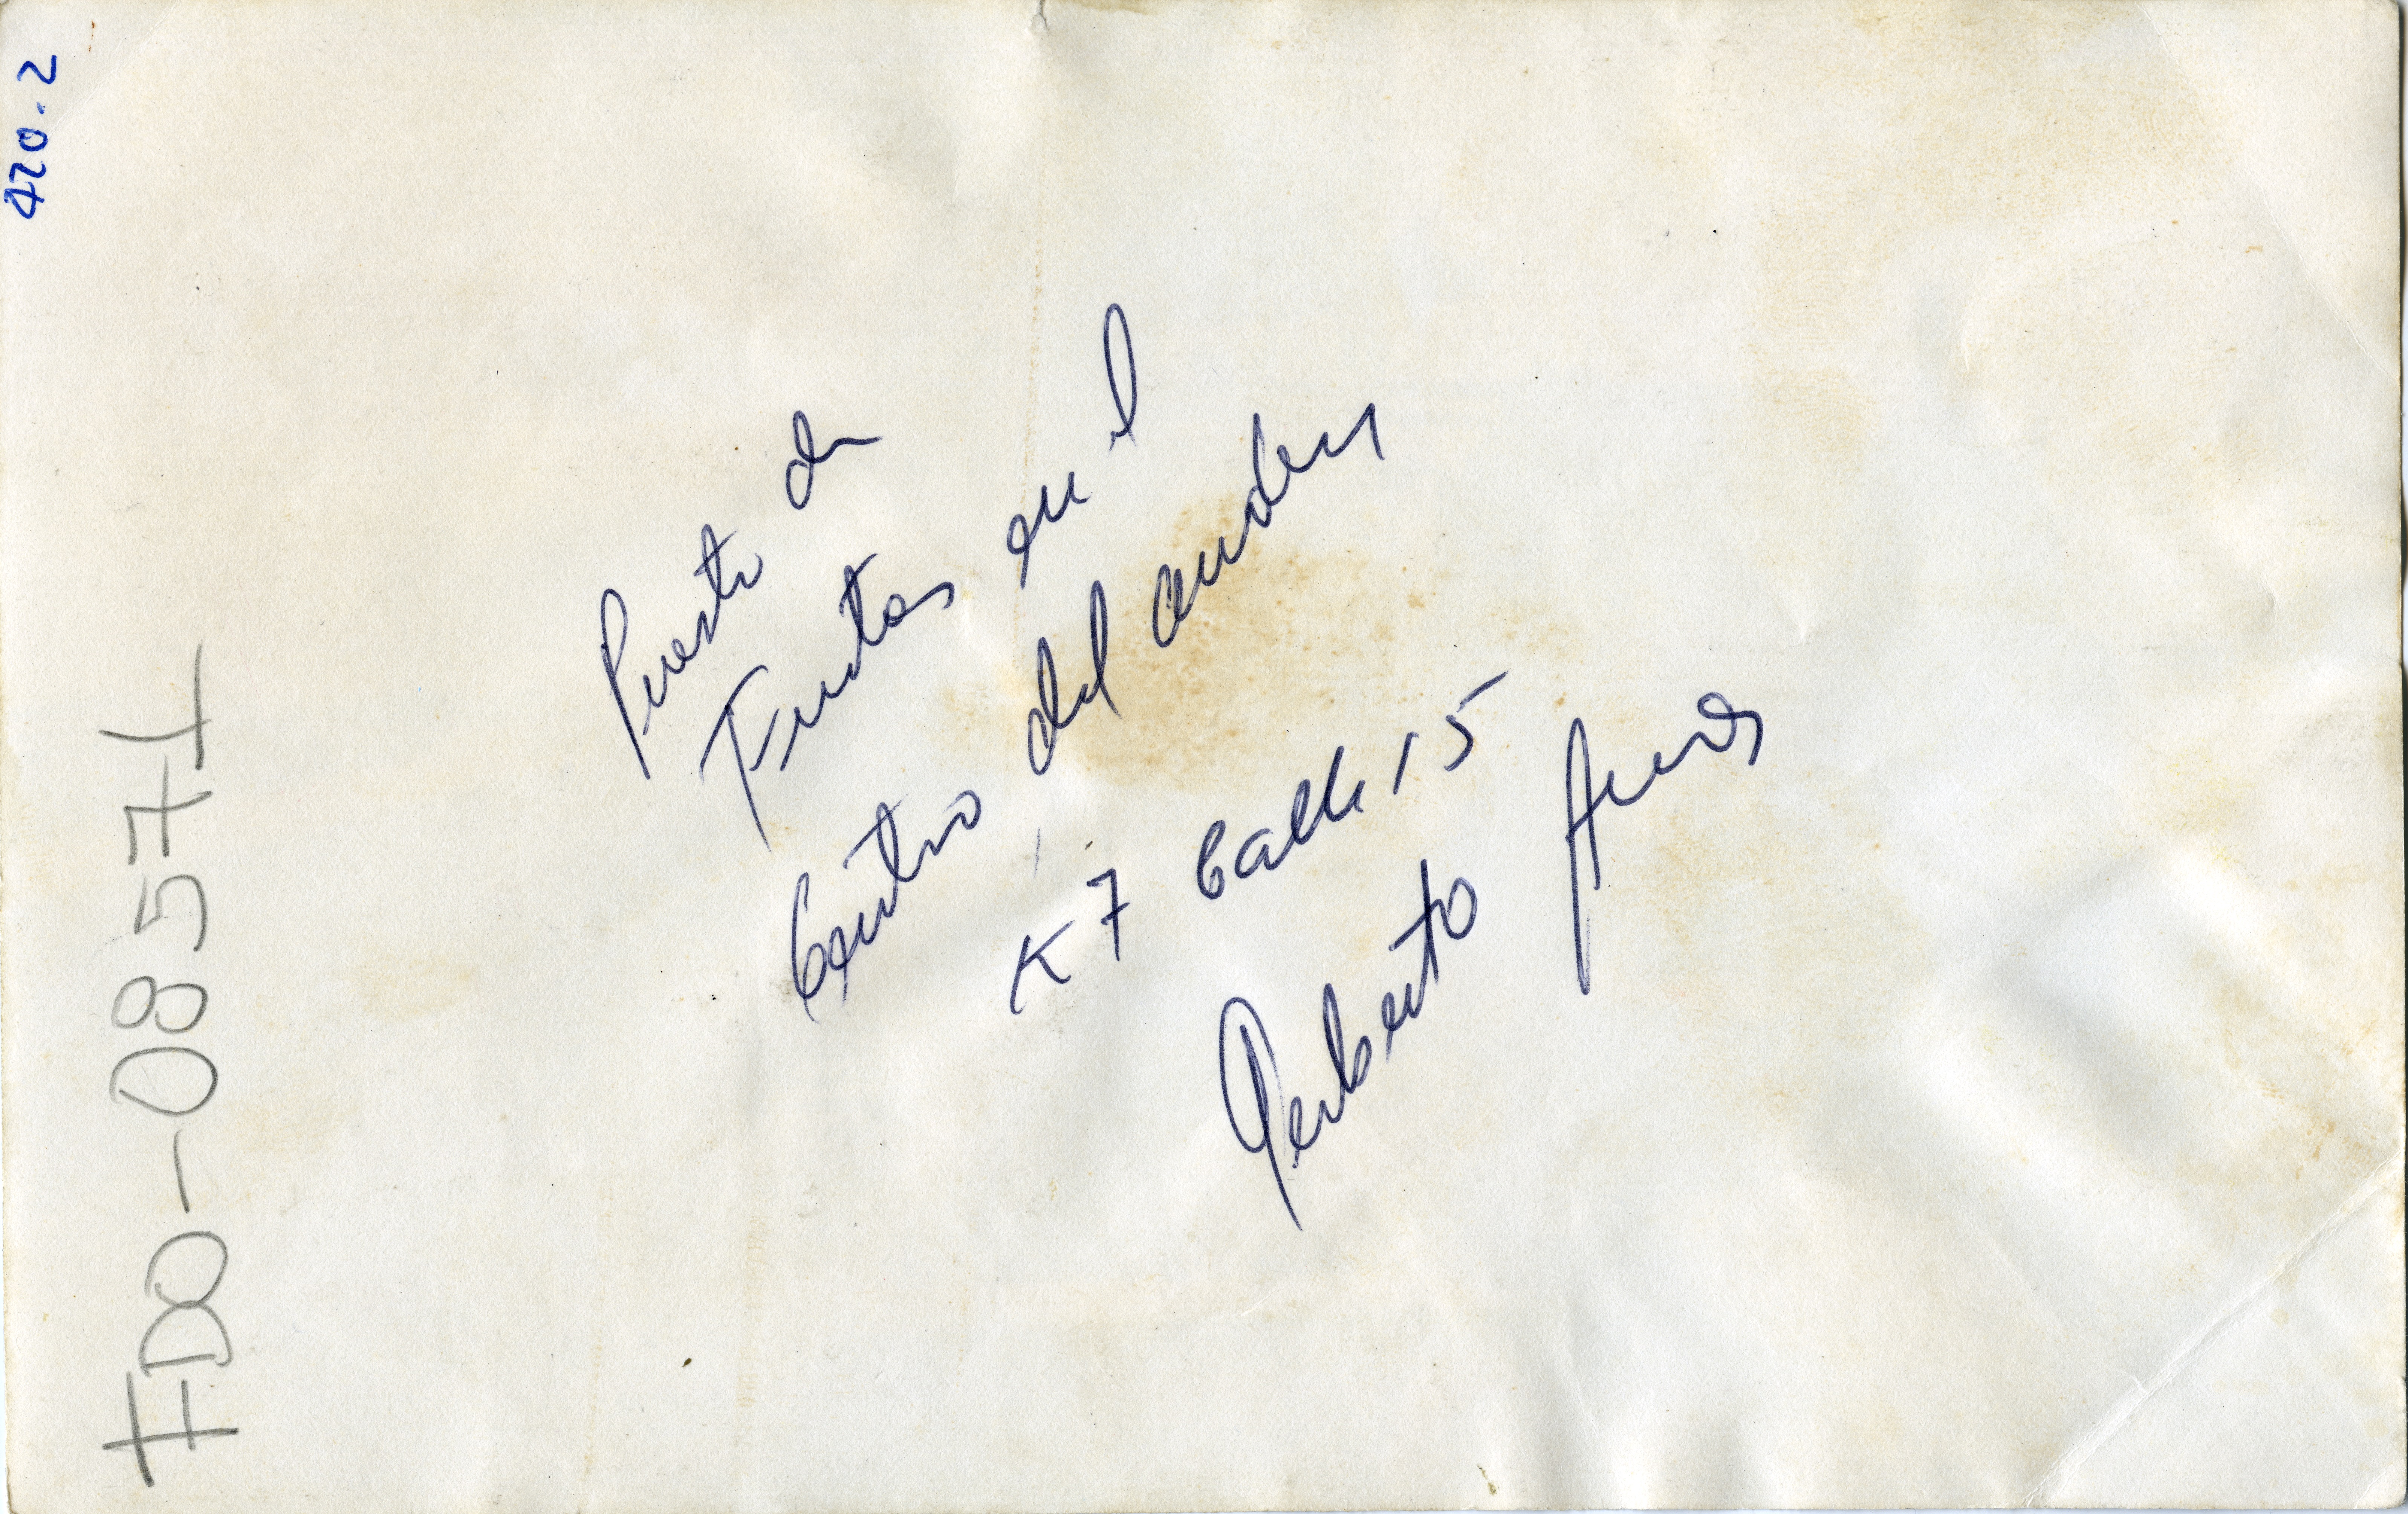 420.2
FDO-08571
Puesto de
Frutas en el
Centro del anden
K7 Calle 15